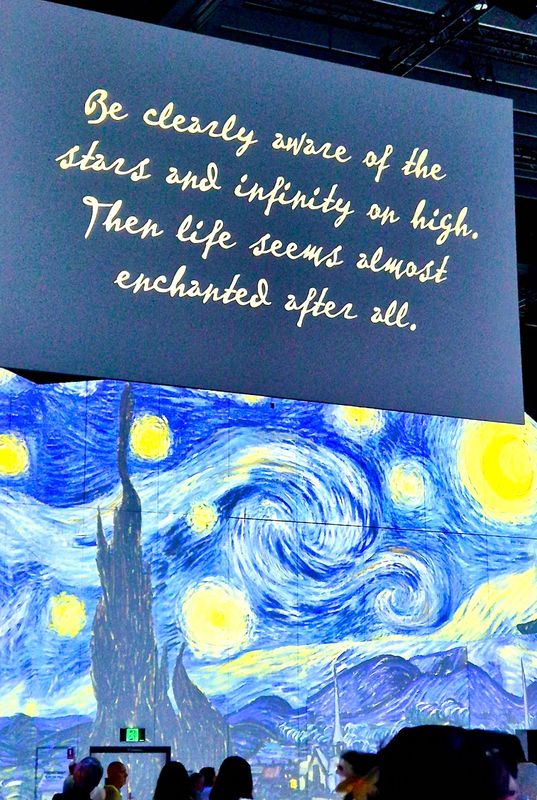 Be clearly aware of the
stars and infinity on high.
Then life seems almost
enchanted after all.